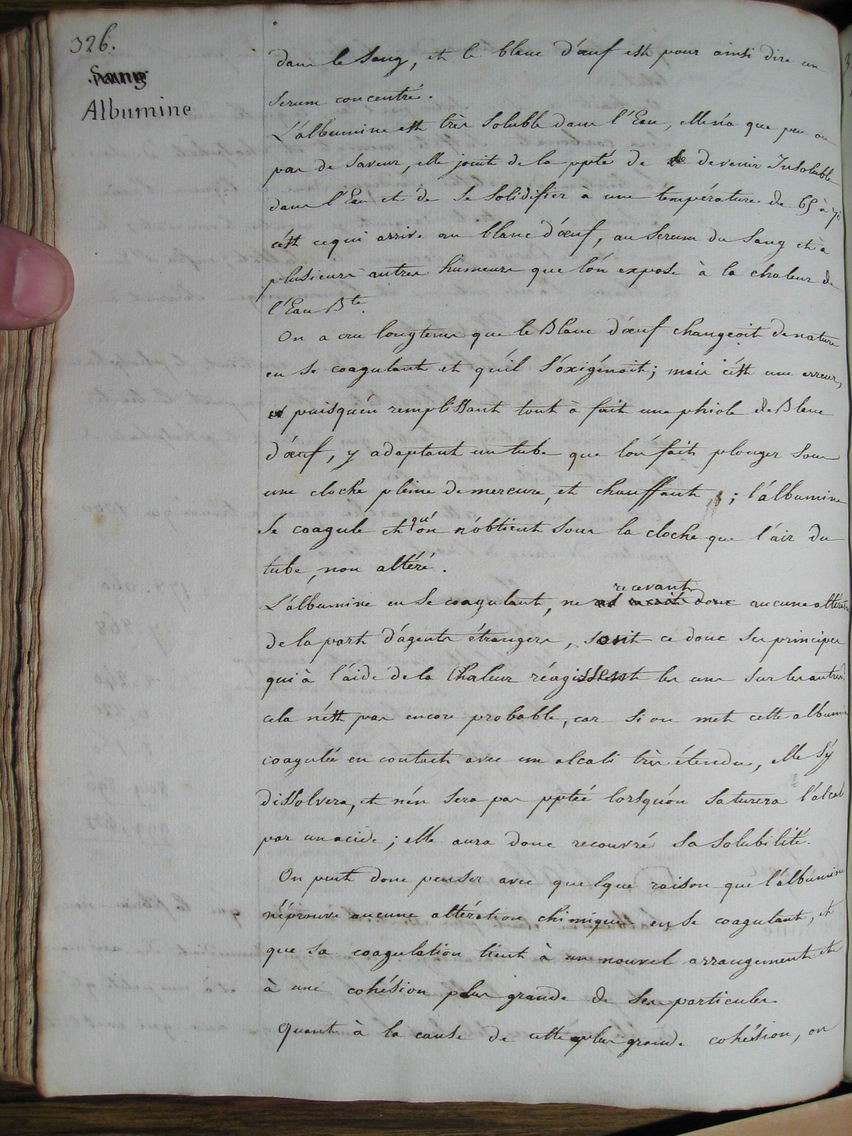 326.
Sang
Albumine
dans le Sang, et le blanc d'œuf est pour ainsi dire un
Serum concentré.
L'albumine est très Soluble dans l'Eau, elle n'a que peu ou
pas de Saveur, elle jouit de la ppté de devenir Insoluble
dans l'Eau et de Se Solidifier à une température de 65 à
c'est ce qui arrive au blanc d'œuf, au Serum du Sang et à
plusieurs autres humeurs que l'on expose à la chaleur de
l'Eau Bte.
On a cru longtems que le Blanc d'œuf changeoit de nature
en Se coagulant et qu'il S'oxigénoit; mais c'est une erreur,
puisqu'en remplissant tout à fait une phiole de Blanc
d'œuf, y adaptant un tube que l'on fait plonger Sous
une cloche pleine de mercure, et chauffant ; l'albumine
Se coagule et qu'on n'obtient Sous la cloche que l'air du
tube, non altéré.
recevant
L'albumine en Se coagulant, ne aucune altération
de la part d'agents étrangers, Sont ce donc Ses principes
qui à l'aide de la Chaleur réagissent les uns Sur les autres
cela n'est pas encore probable, car Si on met cette albumine
coagulée en contact avec un alcali très étendu, elle S'y
dissolvera, et n'en Sera pas pptée lorsqu'on Saturera l'alcali
par un acide; elle aura donc recouvré Sa Solubilité.
On peut donc penser avec quelque raison que l'albumine
n'éprouve aucune altération chimique en Se coagulant, et
que Sa coagulation tient à un nouvel arrangement et
à une cohésion plus grande de Ses particules
Quant à la cause de cette plus grande cohésion, on